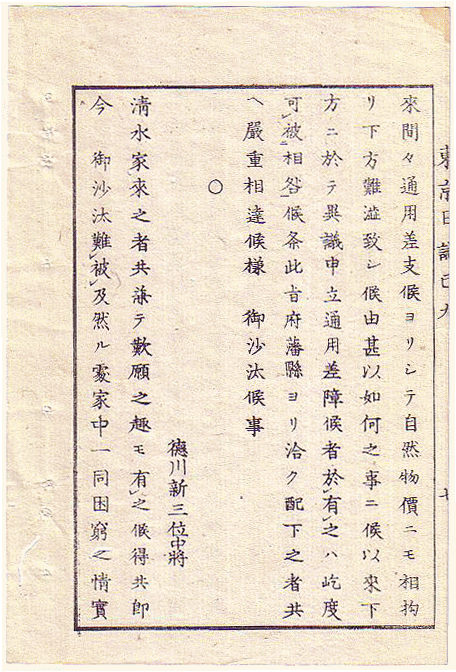 來間々通用差支候ヨリシテ自然物價ニモ相拘
リ下方難澁致シ候由甚以如何之事ニ候以來下
方ニ於テ異議申立通用差障候者於有之ハ屹度
可被相咎候条此旨府藩縣ヨリ洽ク配下之者共
ヘ嚴重相達候樣　御沙汰候事
○
德川新三位中將
淸水家來之者共兼テ歎願之趣モ有之候得共卽
今　御沙汰難被及然ル處家中一同困窮之情實